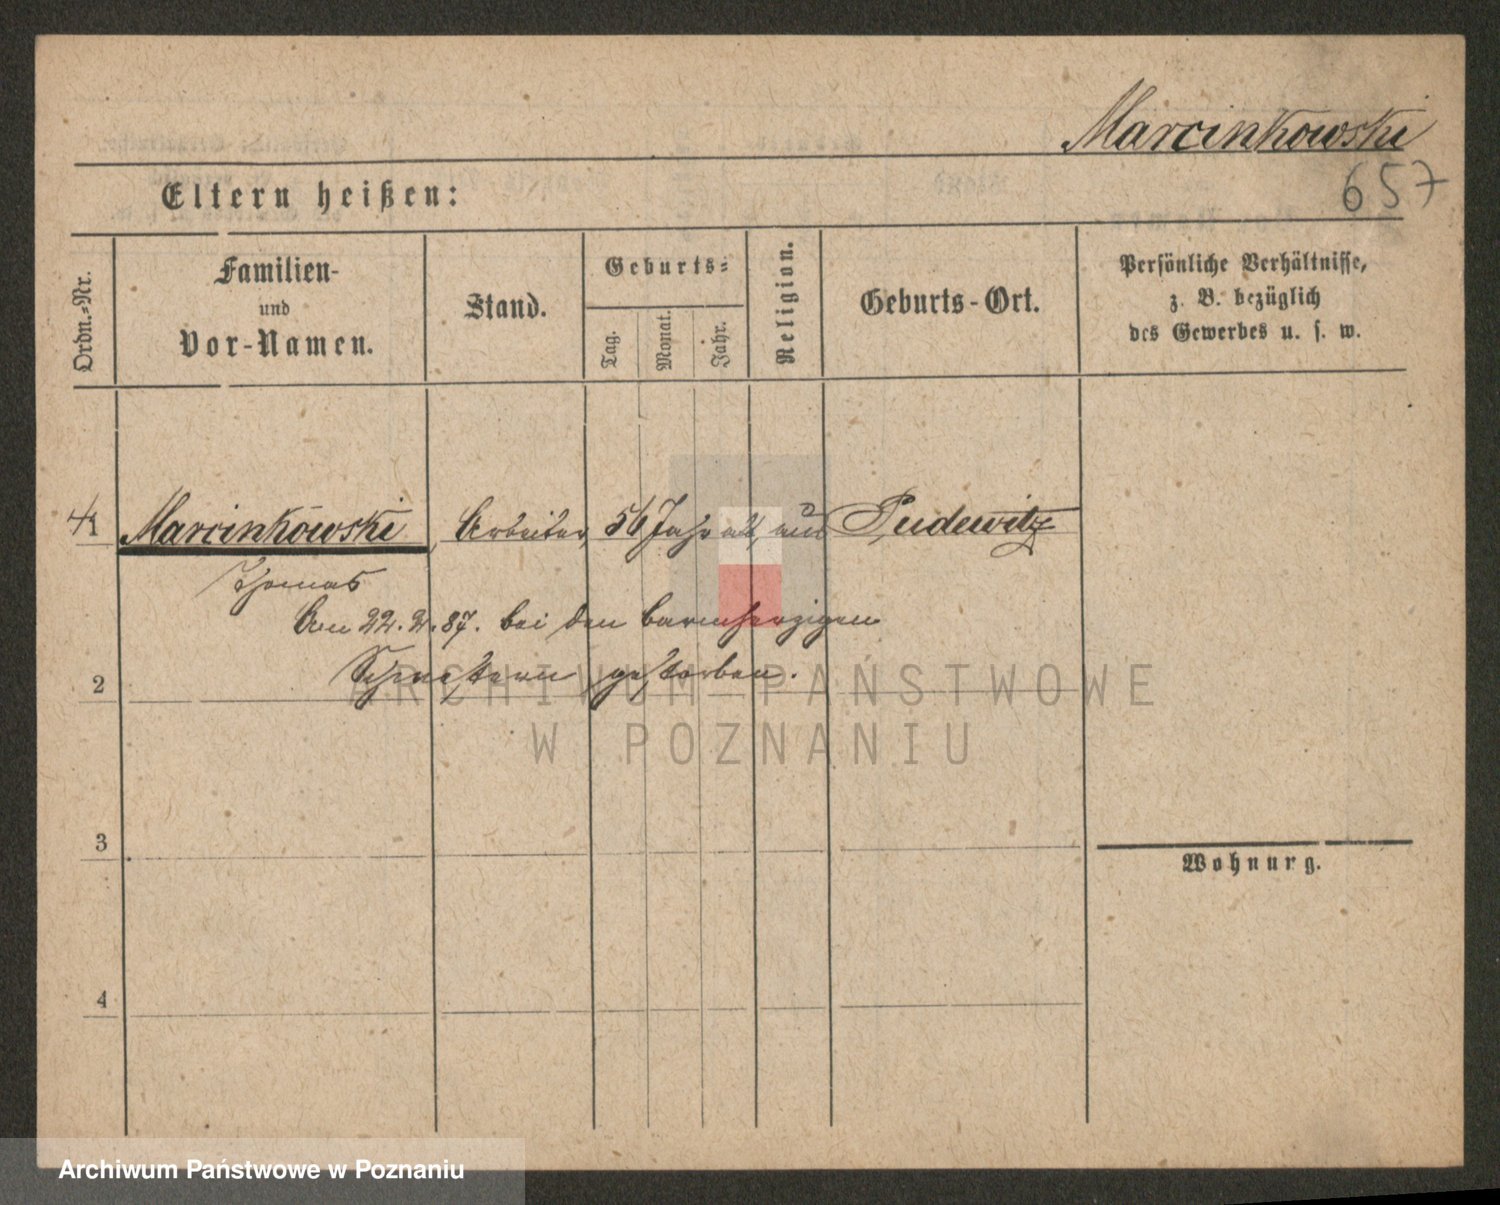 Marcinkowski
657
Eltern heißen:
Ordn.-Nr.
Familien-
und
Vor-Namen.
Stand.
Geburts-
Tag.
Monat.
Jahr.
Religion.
Geburts-Ort.
Persönliche Verhältnisse,
z. B. bezüglich
des Gewerbes u. s. w.
1 Marcinkowski, Arbeiter, 56 Jahr alt, aus Pudewitz
Thomas
Am 22. 2. 87. bei den barmherzigen
Schwestern gestorben.
2
3
Wohnurg.
4
ARCHIWUM PAŃSTWOWE
W POZNANIU
Archiwum Państwowe w Poznaniu